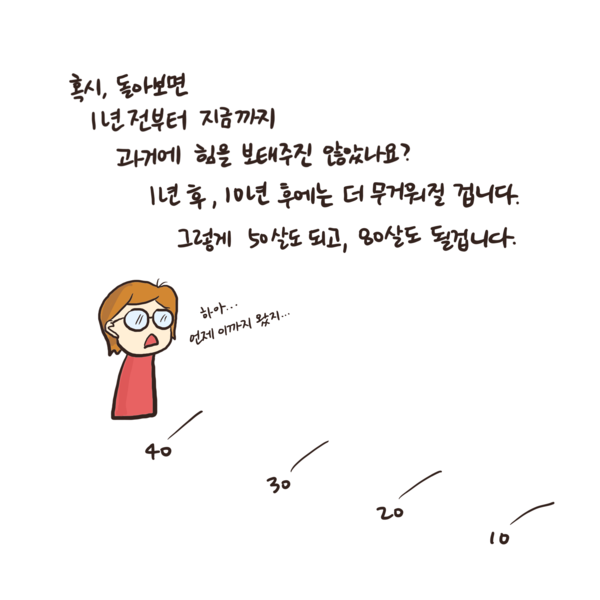 혹시, 돌아보면
1년 전부터 지금까지
과거에 힘을 보태주진 않았나요?
1년 후, 10년 후에는 더 무거워질 겁니다.
그렇게 50살도 되고, 80살도 될겁니다.
하아...
언제 이까지 왔지...
40
30
20
10